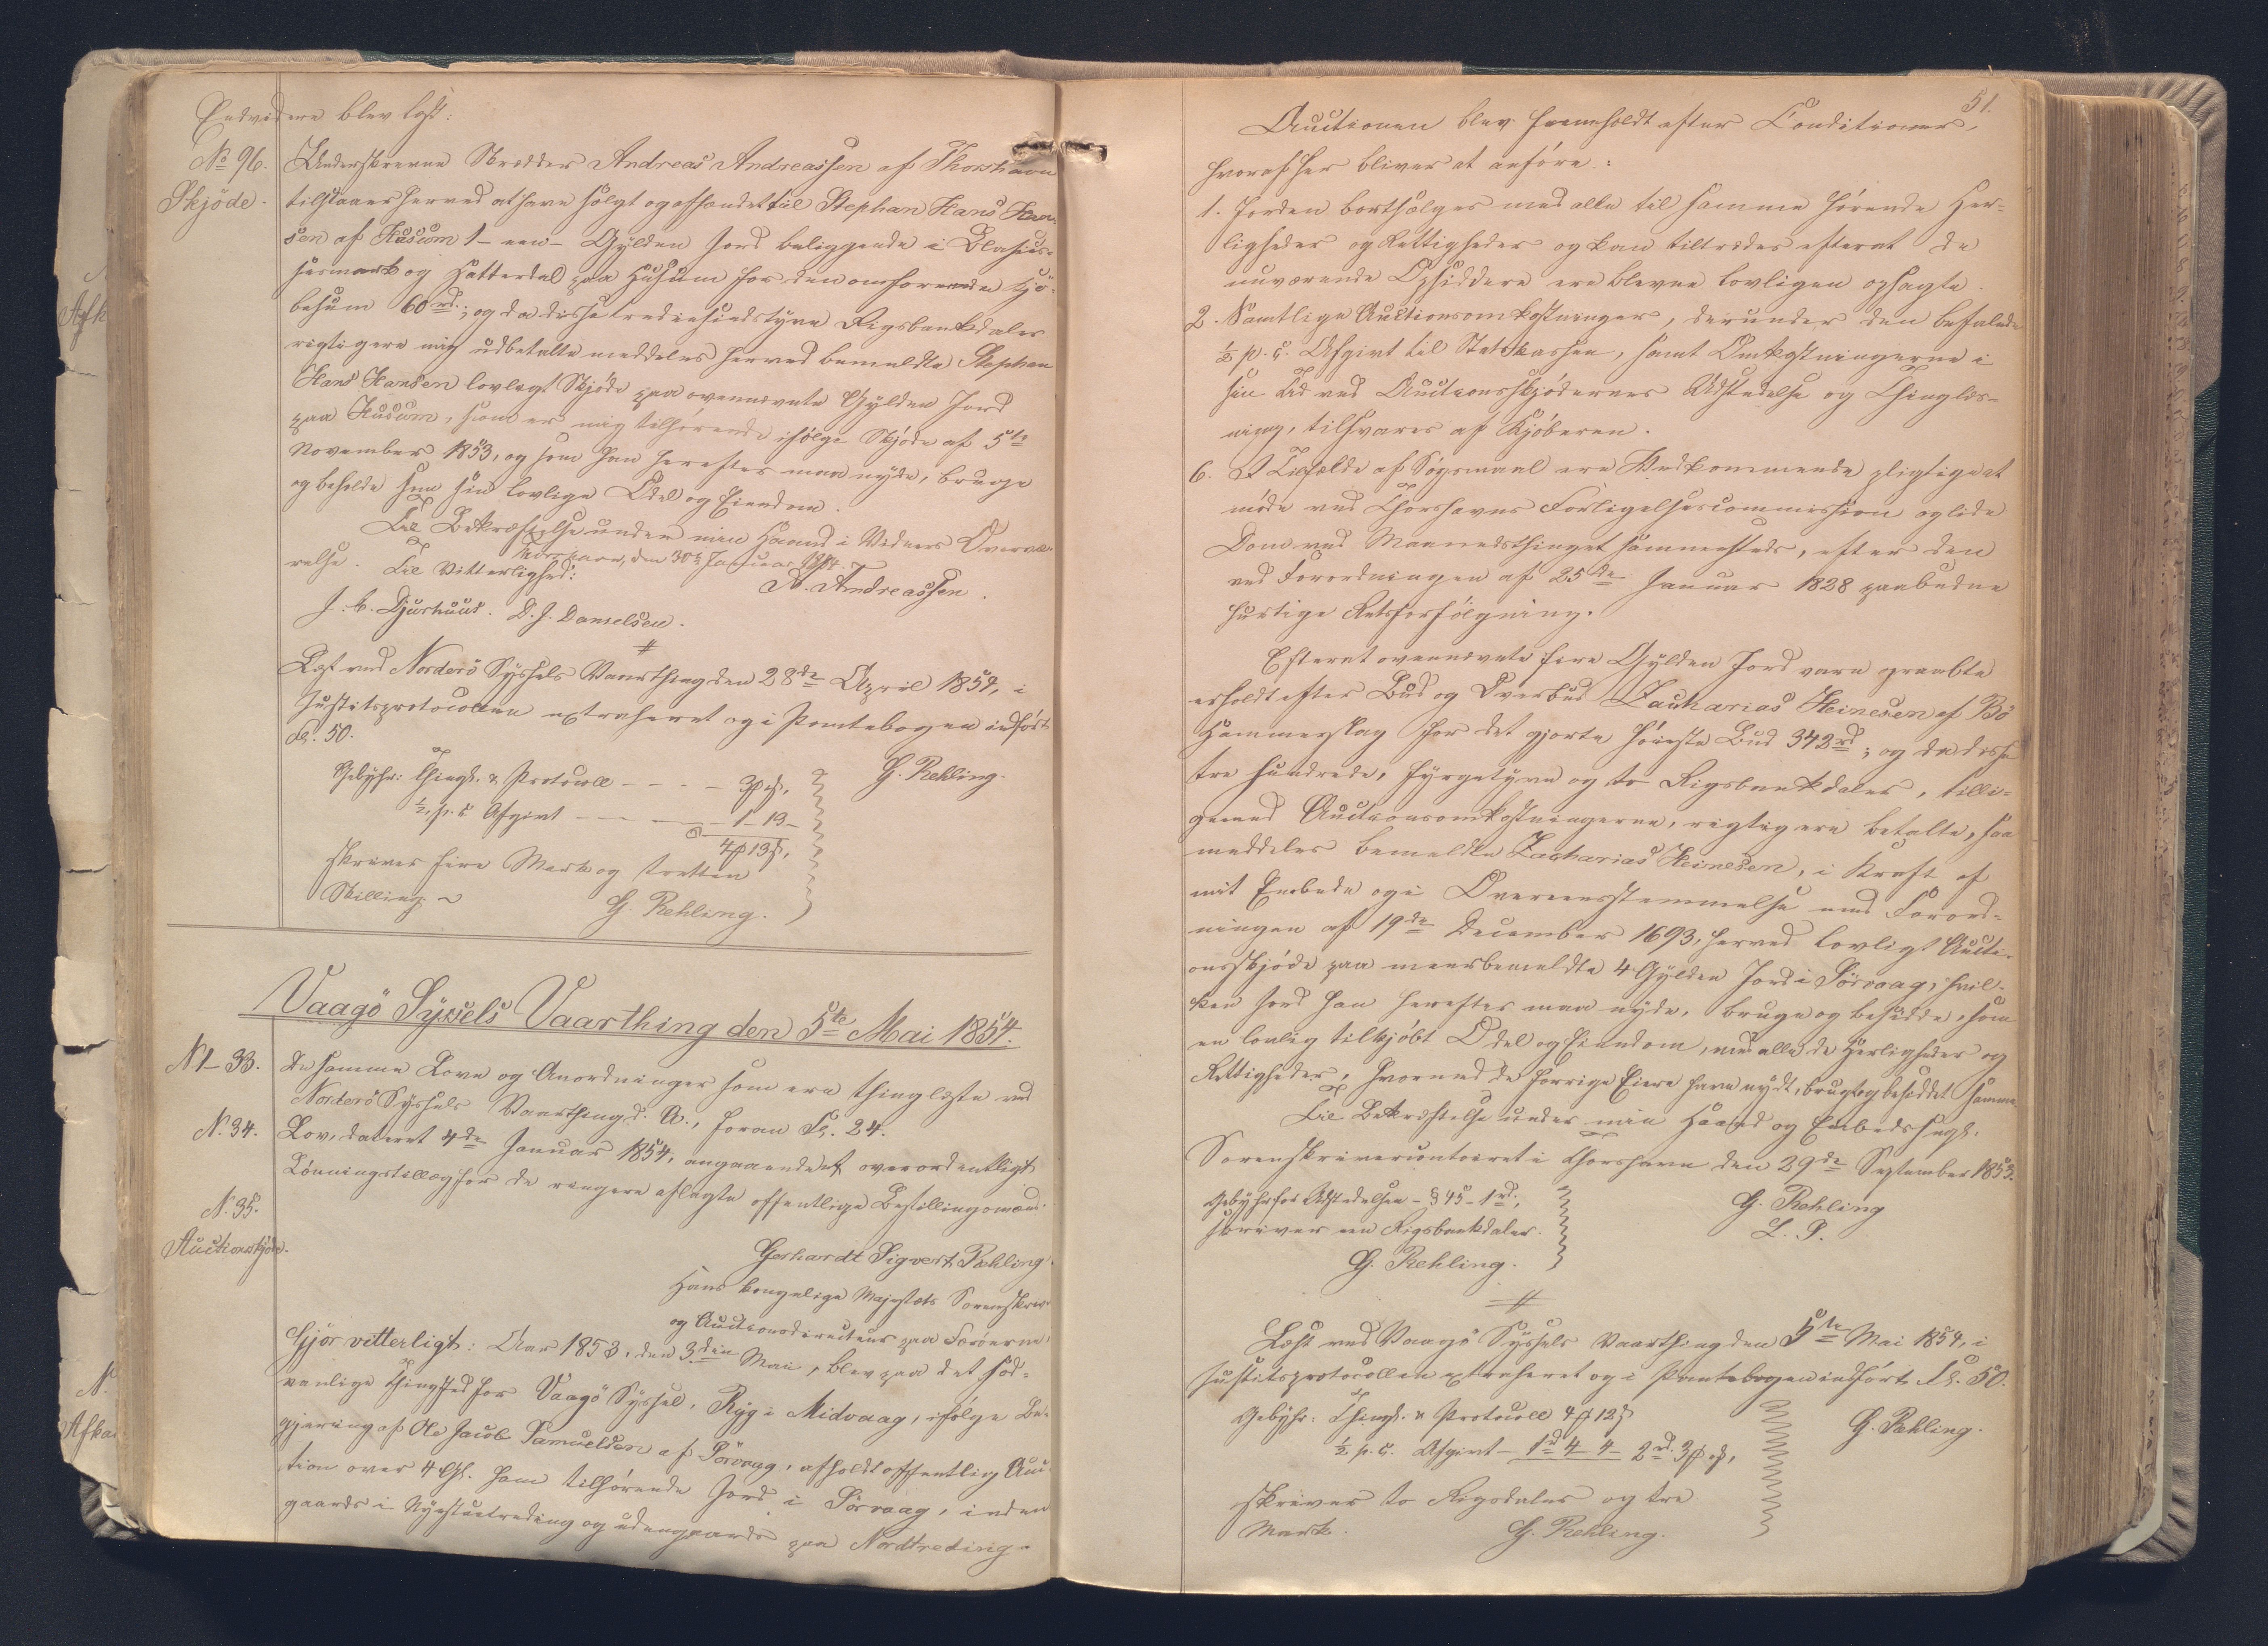 Endvidere blev læst:
No 96. Underskrevne Skrædder Andreas Andreassen af Thorshavn
Skjöde. tilstaaer herved at have solgt og afhændet til Stephan Hans Han-
sen af Husum 1 - een - Gylden Jord beliggende i Blasius-
husmark og Hatterdal paa Husum for den omforenede Kjö-
besum 60 rd.; og da disse tredsindstyve Rigsbankdaler
rigtig ere mig udbetalte meddeles herved bemeldte Stephan
Hans Hansen lovligt Skjöde paa ovennævnte Gylden Jord
paa Husum, som er mig tilhörende ifölge Skjöde af 5te
November 1853, og som han herefter maa nyde, bruge
og beholde som sin lovlige Odel og Eiendom.
Til Bekræftelse under min Haand i Vidners Overvæ-
relse. Thorshavn, den 30te Januar 1854.
Til Vitterlighed: A. Andreassen.
J. C. Djurhuus. D. J. Danielsen.
Læst ved Norderö Syssels Vaarthing den 28de April 1854, i
Justitsprotocollen extraheret og i Pantebogen indfört
Fol. 50.
G. Rehling.
Gebyhr: Thingl. & Protocoll - - - - 3 ß,
½ p. c. Afgivt - - - 1 - 13 -
4 13 ß,
skriver fire Mark og tretten
Skilling ~
G. Rehling.
Vaagö Syssels Vaarthing den 5te Mai 1854.
N 1 - 33. De samme Love og Anordninger som ere thinglæste ved
Norderö Syssels Vaarthing d. A., foran Fol. 24.
N. 34. Lov, dateret 4de Januar 1854, angaaende et overordentligt
Lönningstillæg for de ringere aflagte offentlige Bestillingsmænd.
N. 35.
Auctionsskjöde.
Gerhardt Sigvert Rehling
Hans kongelige Majestæts Sorenskriver
og Auctionsdirecteur paa Færöerne,
Gjör vitterligt: Aar 1853, den 3den Mai, blev paa det sæd-
vanlige Thingsted for Vaagö Syssel, Ryg i Midvaag, ifölge Be-
gjæring af Ole Jacob Samuelsen af Sörvaag, afholdt offentlig Auc-
tion over 4 Gl. ham tilhörende Jord i Sörvaag, inden
gaards i Nyestuetreding og udengaards paa Nordtreding.
51.
Auctionen blev fremholdt efter Conditioner,
hvoraf her bliver at anföre:
1. Jorden bortsælges med alle til samme hörende Her-
ligheder og Rettigheder og kan tiltrædes efterat de
nuværende Opsiddere ere blevne lovligen opsagte.
2. Samtlige Auctionsomkostninger, derunder den befalede
½ p. c. Afgivt til Statskassen, samt Omkostningerne i
sin Tid ved Auctionsskjödernes Udstedelse og Thinglæs-
ning, tilsvares af Kjöberen.
6. I Tilfælde af Sögsmaal ere Vedkommende pligtige at
möde ved Thorshavns Forligelsescommission og lide
Dom ved Maanedsthinget sammesteds, efter den
ved Forordningen af 25de Januar 1828 paabudne
hurtige Retsforfölgning.
Efterat ovennævnte fire Gylden Jord vare opraabte
erholdt efter Bud og Overbud Zacharias Heinesen af Bö
Hammerslag for det gjorte höieste Bud 342 rd; og da disse
tre hundrede, fyrgetyve og to Rigsbankdaler, tilli-
gemed Auctionsomkostningerne, rigtig ere betalte, saa
meddeles bemeldte Zacharias Heinesen, i Kraft af
mit Embede og i Overeensstemmelse med Forord-
ningen af 19de December 1693, herved lovligt Aucti-
onsskjöde paa meerbemeldte 4 Gylden Jord i Sörvaag, hvil-
ken Jord han herefter maa nyde, bruge og besidde, som
en lovlig tilkjöbt Odel og Eiendom, med alle de Herligheder og
Rettigheder, hvormed de forrige Eiere have nydt, brugt og besiddet samme.
Til Bekræftelse under min Haand og Embedssegl.
Sorenskrivercontoiret i Thorshavn den 29de September 1853.
Gebyhr for Udstedelsen - § 45 - 1 rd.,
skriver een Rigsbankdaler.
G. Rehling.
G. Rehling
L. S.
Læst ved Vaagö Syssels Vaarthing den 5te Mai 1854, i
Justitsprotocollen extraheret og i Pantebogen indfört Fol. 50.
Gebyhr: Thingl. & Protocoll 4 12 ß
½ p. c. Afgivt - 1 rd 4 4 - 2 rd. 3 ß,
skriver to Rigsdaler og tre
Mark.
G. Rehling.
G. Rehling.